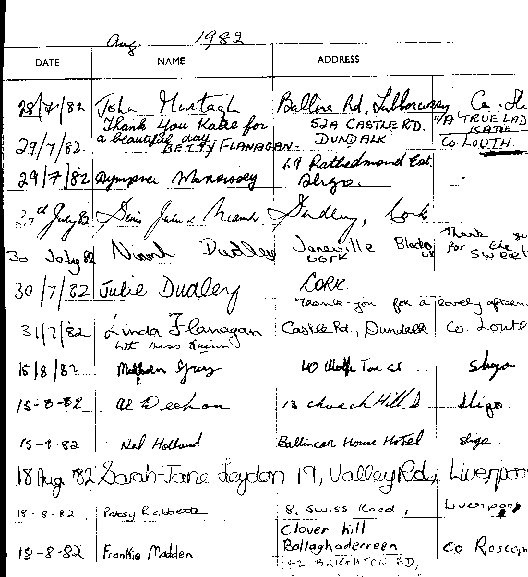 Aug. 1982
DATE NAME ADDRESS
28/7/82 John Murtagh Ballina Rd, Tubbercurry Co. Sl
Thank you Katie for 52A CASTLE RD. A TRUE LAD
29/7/82. a beautiful day DUNDALK KATIE
BETTY FLANAGAN. Co. LOUTH.
29/7/82 Dympna 19 Rathedmond Est.
Sligo.
July 82 Dudley, Cork
30 July 82 Niamh Dudley Janeville Black Thank
CORK for the sweet
30/7/82 Julie Dudley CORK.
Thank-you for a lovely afternoon
31/7/82 Linda Flanagan Castle Rd., Dundalk Co. Louth
15/8/82 Gray 40 Wolfe Tone St Sligo
15-8-82 13 Church Hill Sligo
15-8-82 Neil Holland Ballincar House Hotel Sligo
18 Aug '82 Sarah-Jane Leydon 19, Valley Rd, Liverpool
18-8-82. Patsy 8, Swiss Road, Liverpool
Clover hill
18-8-82 Frankie Madden Ballaghaderreen Co Roscom